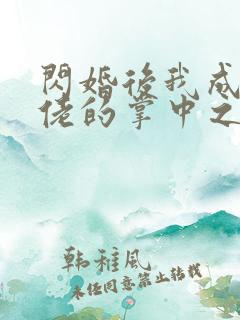 閃婚後我成
佬的掌中之
韩稚风
未经同意禁止转载